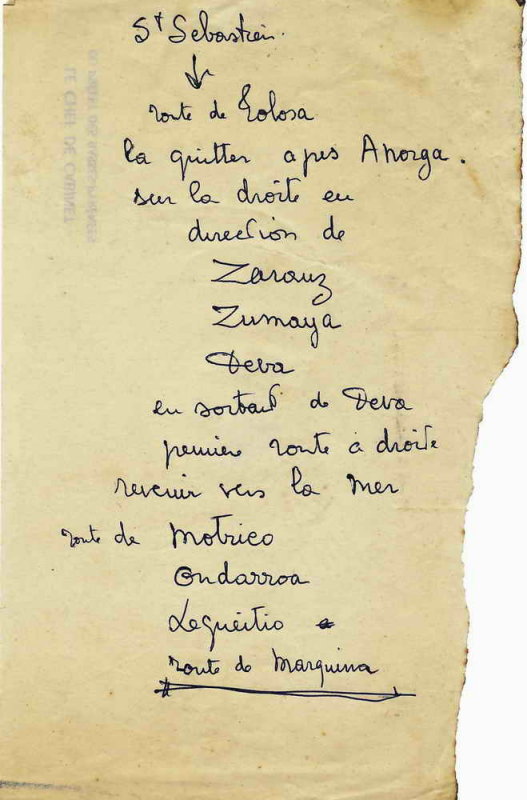 St Sebastien.
route de Tolosa
la quitter apres Anorga.
sur la droite en
direction de
Zarauz
Zumaya
Deva
en sortant de Deva
première route à droite
revenir vers la Mer
route de Motrico
Ondarroa
Lequeitio
route de Marquina
LE CHEF DE CABINET